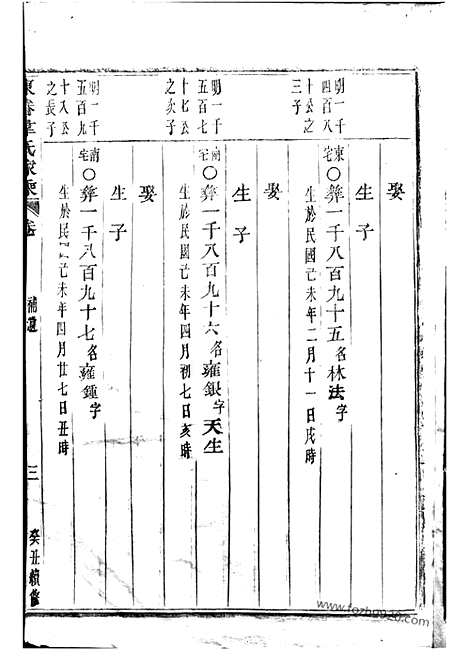 明一千
四百八
十公之
三子
東宅〇彝一千八百九十五名林法字
生於民國亡未年二月十一日戌時
娶
生子
明一千
五百七
十七公
之次子
南宅〇彝一千八百九十六名雍銀字天生
生於民國亡未年四月初七日亥時
娶
生子
明一千
五百九
十八公
之長子
南宅〇彝一千八百九十七名雍鍾字
生於民國亡未年四月廿七日丑時
娶
生子
東眷韋氏家乘 卷 補遺 三 癸丑續修
www.fozhu920.com